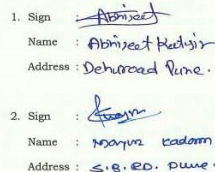 1. Sign : Abhijeet
Name : Abhijeet
Address : Dehuroad Pune.
2. Sign :
Name : Mayur Kadam
Address : S.B. RD. Pune.